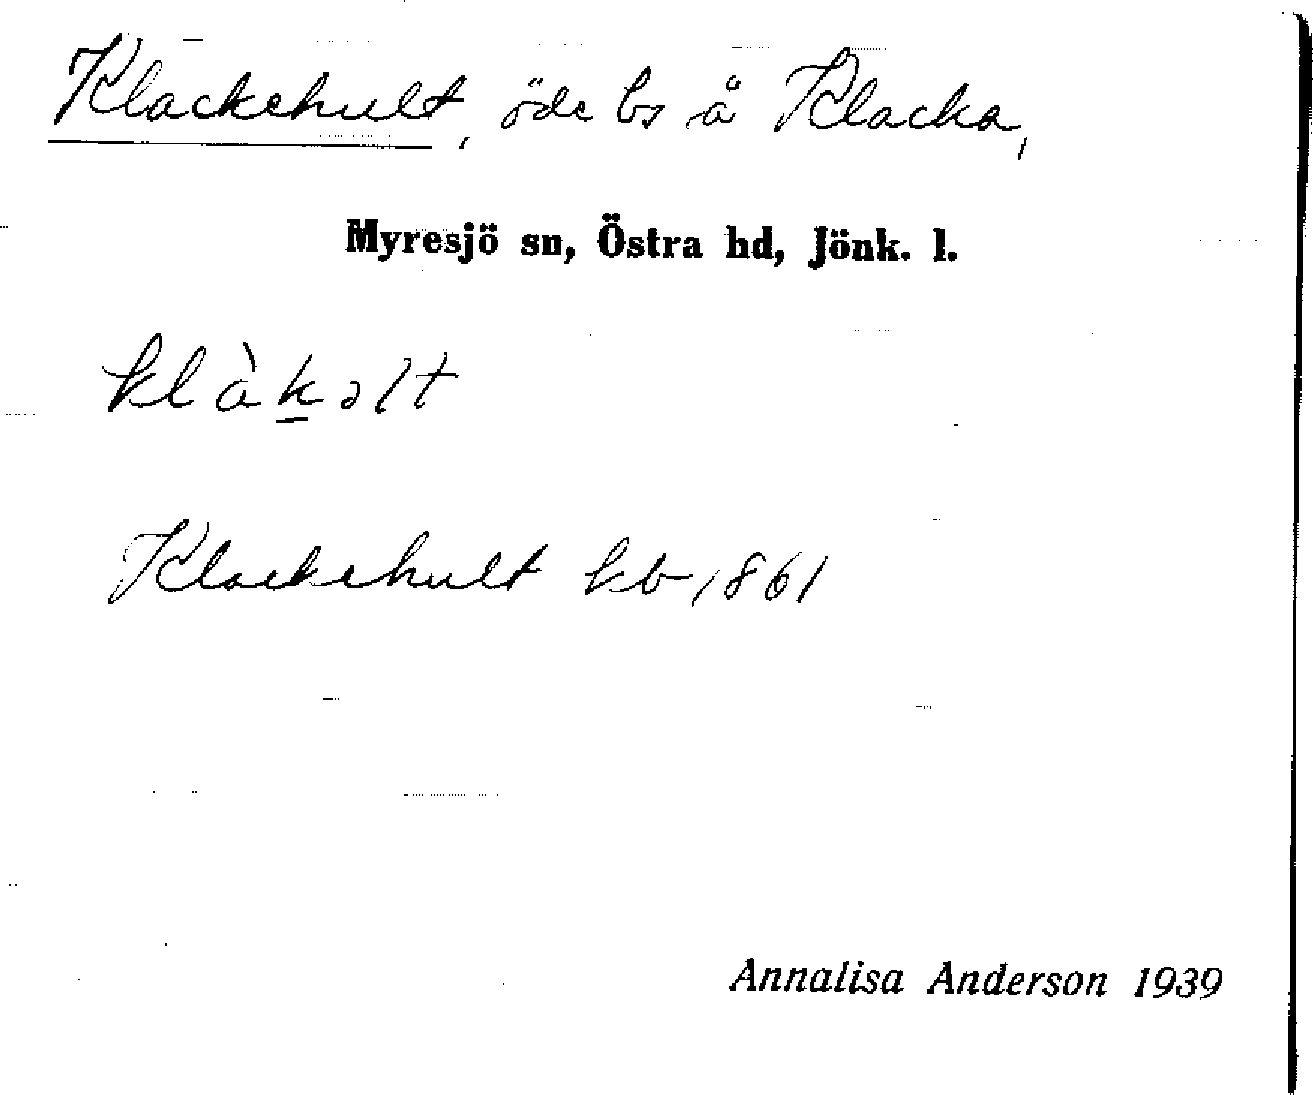 Klackehult, öde bs å Klacka,
Myresjö sn, Östra hd, Jönk. l.
klàkəlt
Klackehult kb 1861
Annalisa Anderson 1939